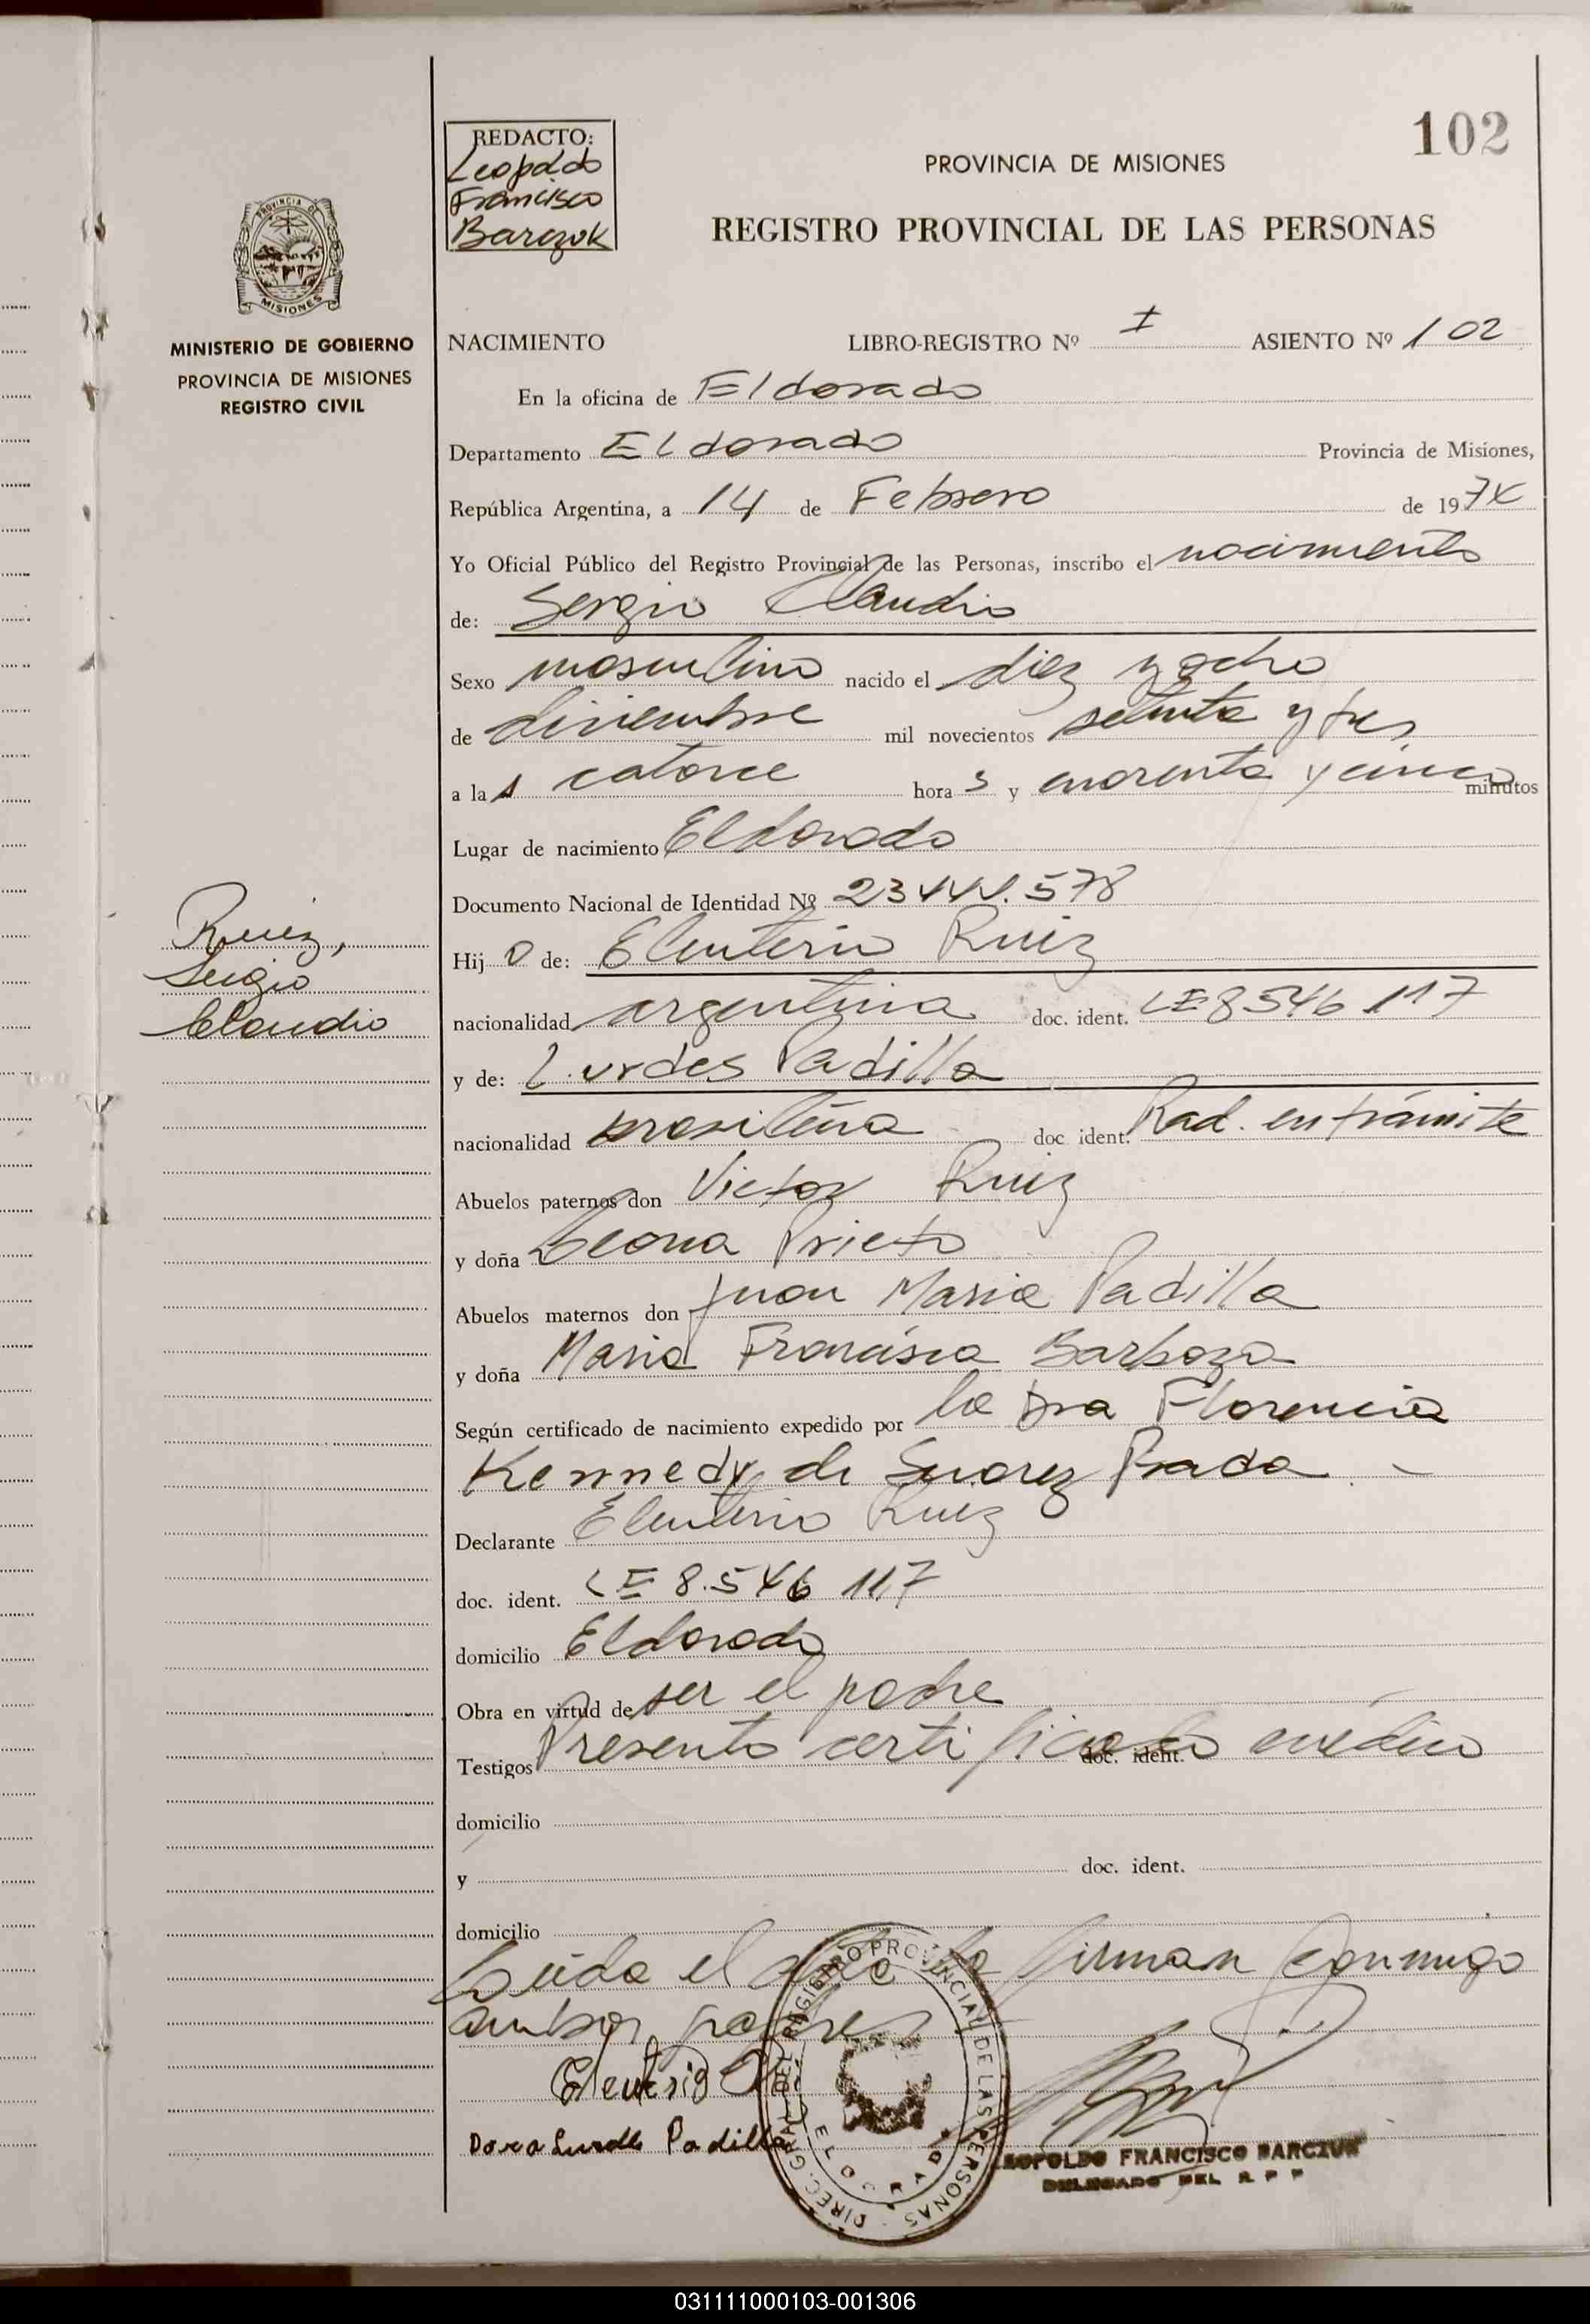 102
REDACTO:
Leopoldo
Francisco
Barczuk
PROVINCIA DE MISIONES
REGISTRO PROVINCIAL DE LAS PERSONAS
PROVINCIA DE
MISIONES
MINISTERIO DE GOBIERNO
PROVINCIA DE MISIONES
REGISTRO CIVIL
NACIMIENTO LIBRO-REGISTRO Nº I ASIENTO Nº 102
En la oficina de Eldorado
Departamento Eldorado Provincia de Misiones,
República Argentina, a 14 de Febrero de 1974
Yo Oficial Público del Registro Provincial de las Personas, inscribo el nacimiento
de: Sergio Claudio
Sexo masculino nacido el diez y ocho
de diciembre mil novecientos setenta y tres
a las catorce horas y cuarenta y cinco minutos
Lugar de nacimiento Eldorado
Documento Nacional de Identidad Nº 23444.578
Ruiz,
Sergio
Claudio
Hijo de: Eleuterio Ruiz
nacionalidad argentina doc. ident. LE 8546117
y de: Lurdes Padilla
nacionalidad brasileña doc ident. Rad. en trámite
Abuelos paternos don Victor Ruiz
y doña Leona Prieto
Abuelos maternos don Juan Maria Padilla
y doña Maria Francisca Barboza
Según certificado de nacimiento expedido por la Dra Florencia
Kennedy de Suarez Prada.-
Declarante Eleuterio Ruiz
doc. ident. LE 8.546 117
domicilio Eldorado
Obra en virtud de ser el padre
Testigos Presento certificado doc. ident. médico
domicilio
y doc. ident.
domicilio
Leida el acta la firman conmigo
ambos padres
Eleuterio
Dora Lurdes Padilla
DIREC. GRAL. DEL REGISTRO PROVINCIAL DE LAS PERSONAS
ELDORADO
LEOPOLDO FRANCISCO BARCZUK
DELEGADO DEL R P P
031111000103-001306